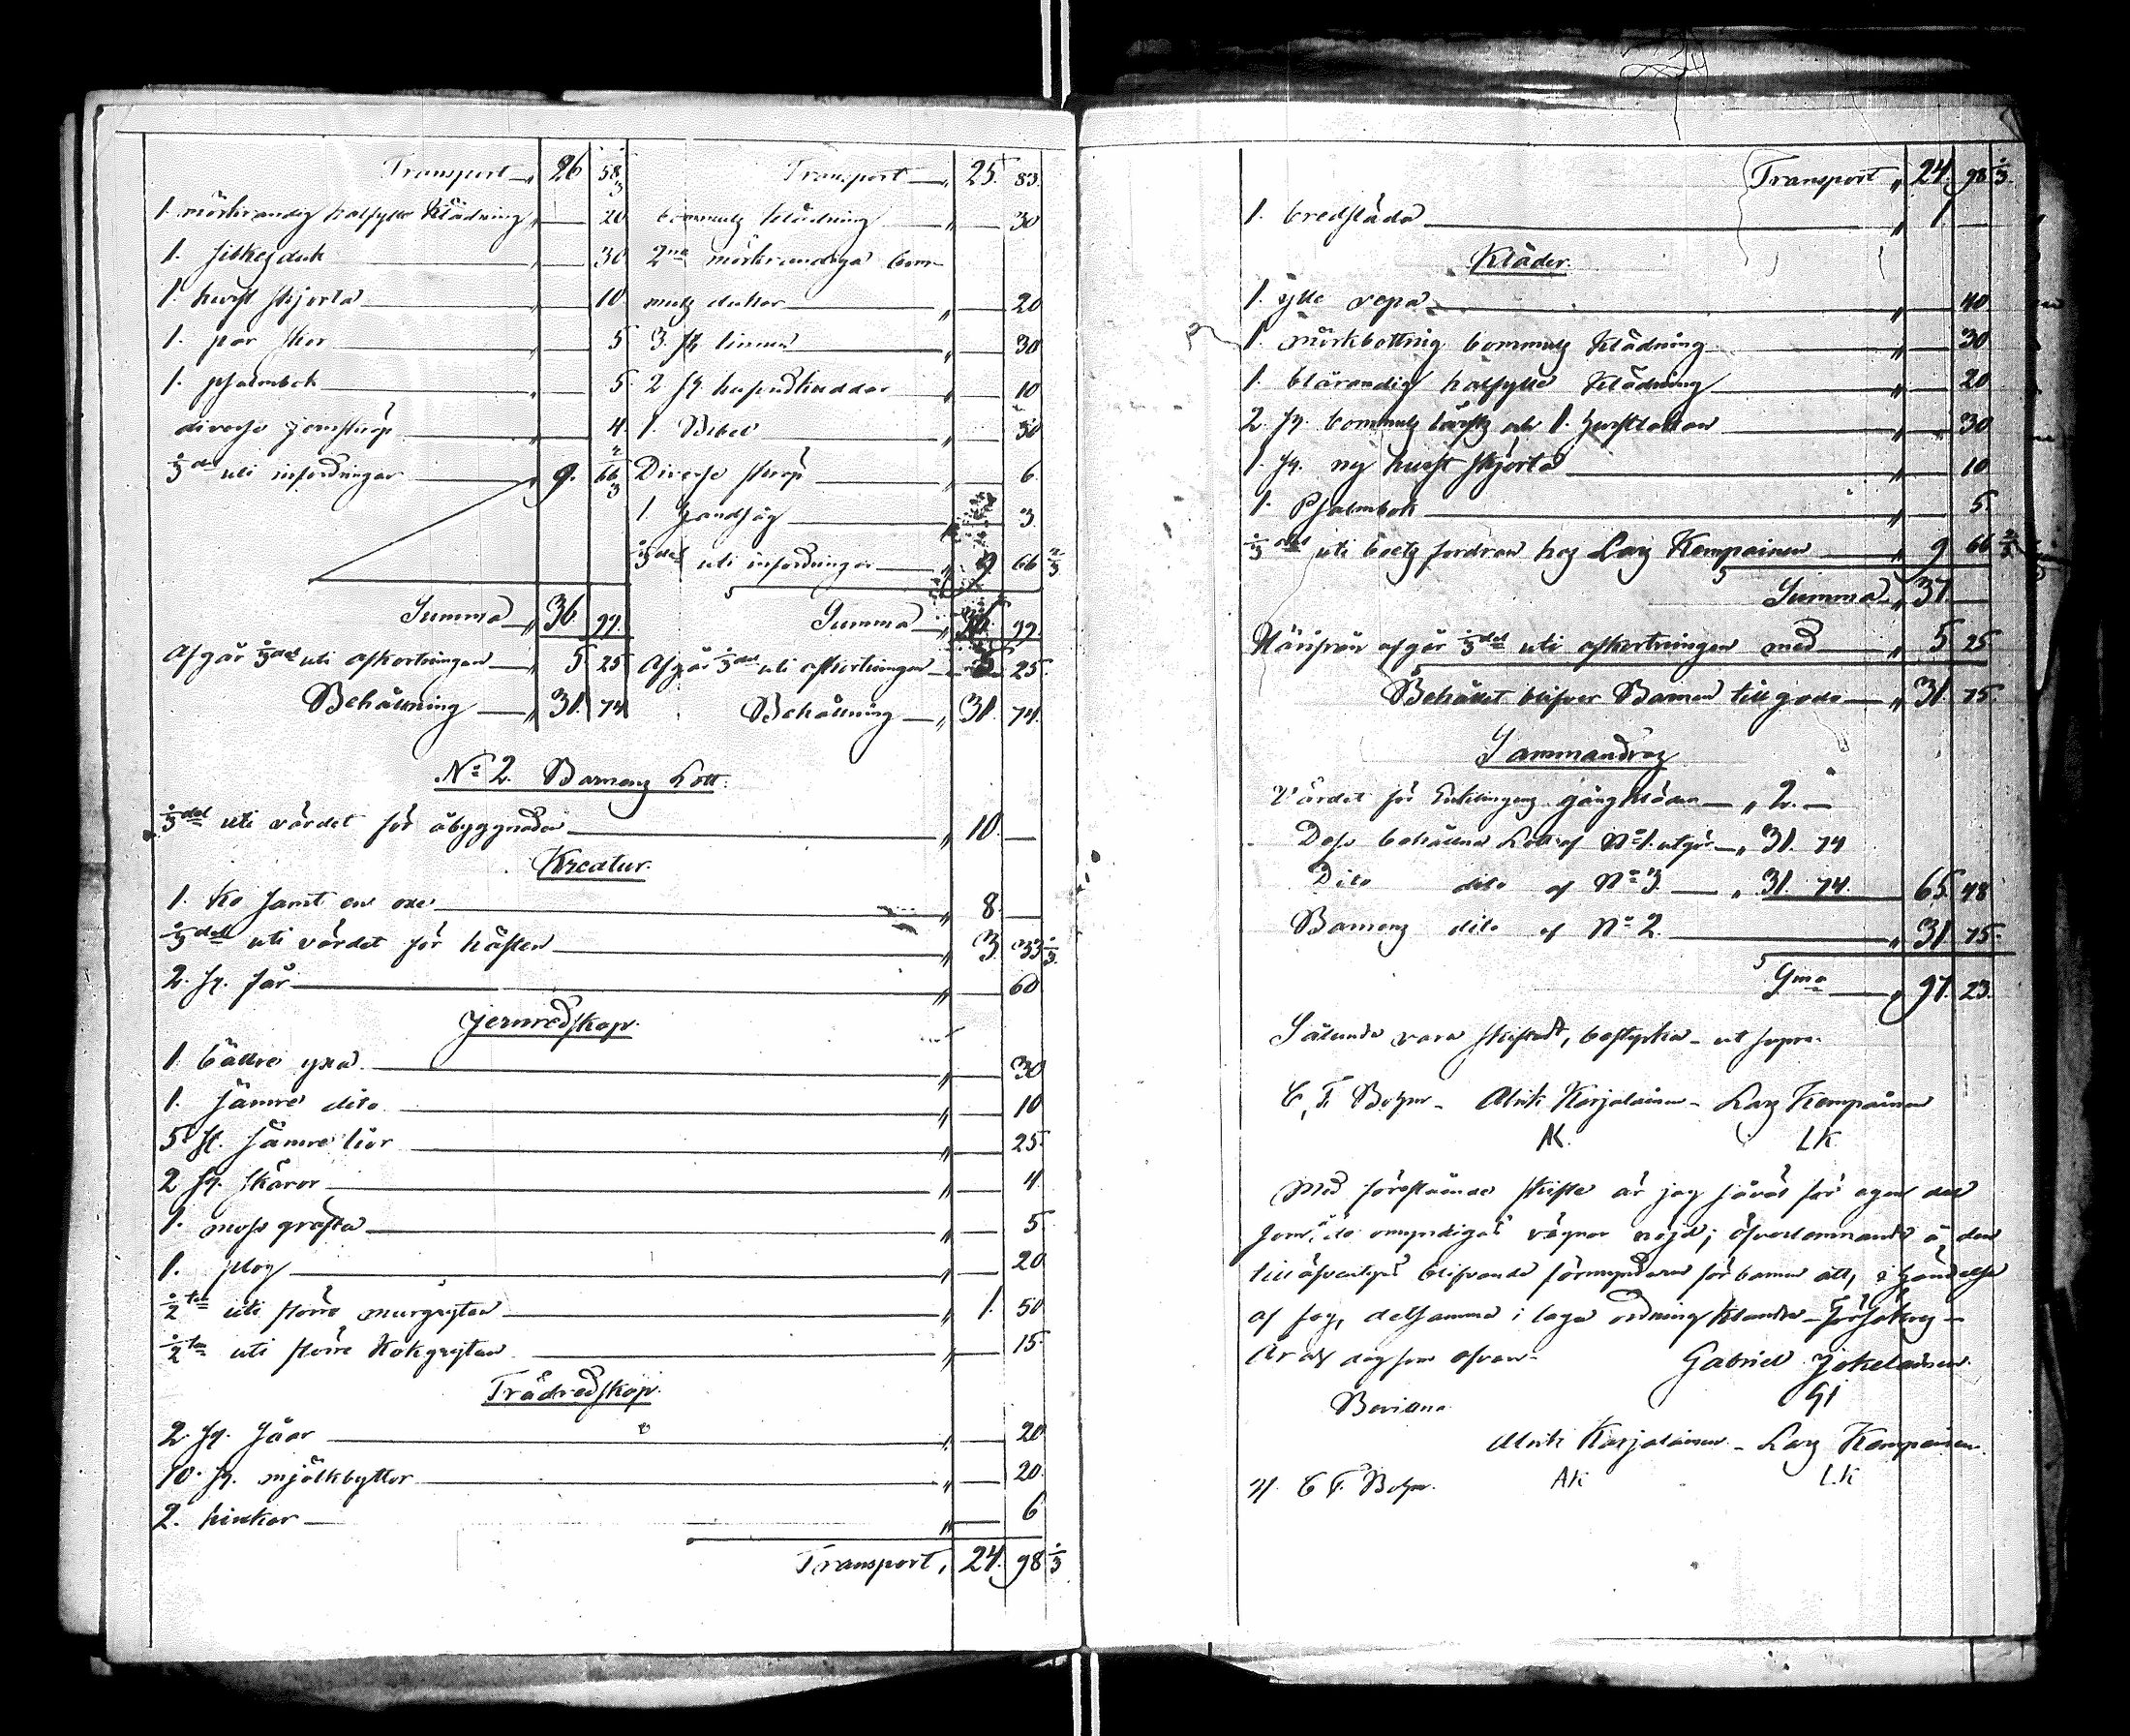 Transport „ 26 58 1/3
1. mörkrandig halfylle klädning „ — 20
1. silkesduk „ — 30
1. hurst skjorta „ — 10
1. par skor „ — 5
1. psalmbok „ — 5.
diverse jernskräp „ — 4
1/3 del uti infordringar „ 9. 66 2/3
Summa „ 36. 99.
Afgår 1/3 del uti afkortningen „ 5 25
Behållning „ 31. 74
Transport „ 25. 83.
bommulls klädning „ — 30
2ne mörkrandiga bom-
mulls dukar „ — 20
3. st. linnen „ — 30
2 st. hufvudkuddar „ — 10
1. Bibel „ — 50
Diverse skräp „ — 6
1. handsåg „ — 3.
1/3 del uti infordringar „ 9 66 2/3
Summa „ 36. 99.
Afgår 1/3 del uti afkortningen „ 5 25.
Behållning „ 31. 74.
No 2. Barnens Lott.
1/3 del uti värdet för åbyggnaden „ 10. —
Kreatur.
1. Ko samt en oxe „ 8. —
1/3 del uti värdet för hästen „ 3. 33 1/3.
2. st. får „ — 60
Jernredskap.
1. bättre yxa „ — 30
1. sämre dito „ — 10
5. st. sämre liar „ — 25.
2 st. skäror „ — 4.
1. moss grafta „ — 5
1. plog „ — 20
1/2 ten uti större murgrytan „ 1. 50
1/2 ten uti större Kokgrytan „ — 15.
Trädredskap.
2. st. Såar „ — 20
10. st. mjölkbyttor „ — 20.
2. hinkar „ — 6
Transport, 24. 98 1/3
Transport „ 24. 98 1/3.
1. bredslåda „ 1. —
Kläder.
1. ylle repa „ — 40
1. mörkbottnig bommulls klädning „ — 30
1. blårandig halfylle klädning „ — 20
2. st. bommulls och 1. „ — 30
1. st. ny hurst skjorta „ — 10
1. Psalmbok „ — 5.
1/3 del uti boets fordran hos Lars Kempainen „ 9 66 2/3
Summa „ 37. —
Härifrån afgår 1/3 del uti afkortningen med „ 5. 25.
Behållet blifver Barnen till godo „ 31. 75.
Sammandrag
Värdet för Enklingens gångkläder „ 2. —
Dess behållna Lott af No 1. utgör „ 31. 74
Dito dito af No 3. „ 31. 74. 65. 48
Barnens dito af No 2. „ 31. 75.
Sma „ 97. 23.
Sålunda vara skiftadt, bestyrka — ut supra.
C. F. — Ulrik Karjalainen — Lars Kempainen
AK. LK
Med förestående skifte är jag såväl för egen del
som de omyndigas vägnar nöjd; öfverlemnande å den
tilläfventyrs blifvande förmyndaren för barnen att, i händelse
af fog, detsamma i laga ordning klandra — Försäkras —
År och dag som ofvan. — Gabriel Jokelainen.
GJ
Bevittna
Ulrik Karjalainen — Lars Kempainen.
C. F. AK LK